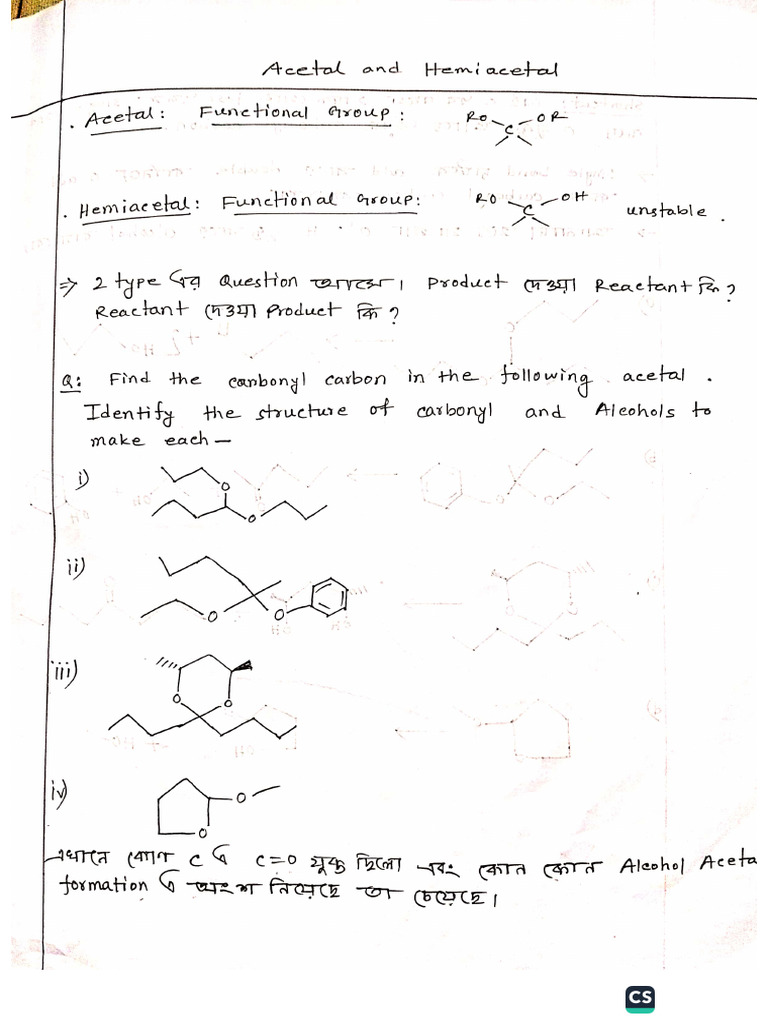 Acetal and Hemiacetal
. Acetal: Functional Group: RO OR C
. Hemiacetal: Functional Group: RO OH C unstable.
⇒ 2 type এর Question আসে। Product দেওয়া Reactant কি?
Reactant দেওয়া Product কি?
Q: Find the carbonyl carbon in the following acetal.
Identify the structure of carbonyl and Alcohols to
make each —
i) O O
ii) O O
iii) O O
iv) O O
এখানে কোন C এ C=O যুক্ত ছিলো এবং কোন কোন Alcohol Aceta
formation এ অংশ নিয়েছে তা চেয়েছে।
CS